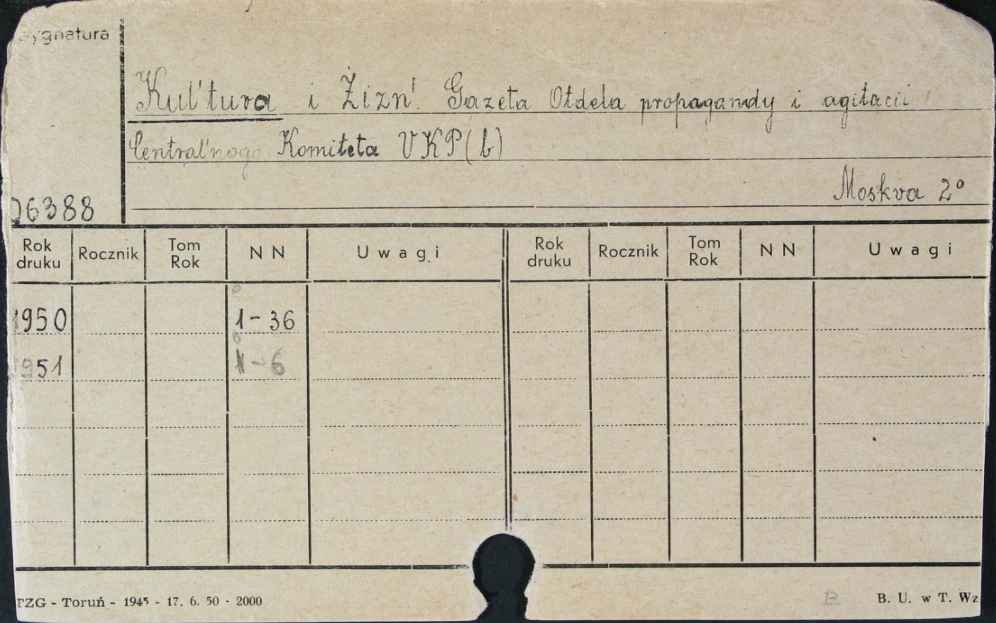 Sygnatura
Kul'tura i Žizn'. Gazeta Otdela propagandy i agitacii
Central'nogo Komiteta VKP(b)
Moskva 2°
06388
Rok druku Rocznik Tom Rok NN Uwagi Rok druku Rocznik Tom Rok NN Uwagi
1950 1-36
1951 1-6
PZG - Toruń - 1945 - 17. 6. 50 - 2000
B. U. w T. Wz